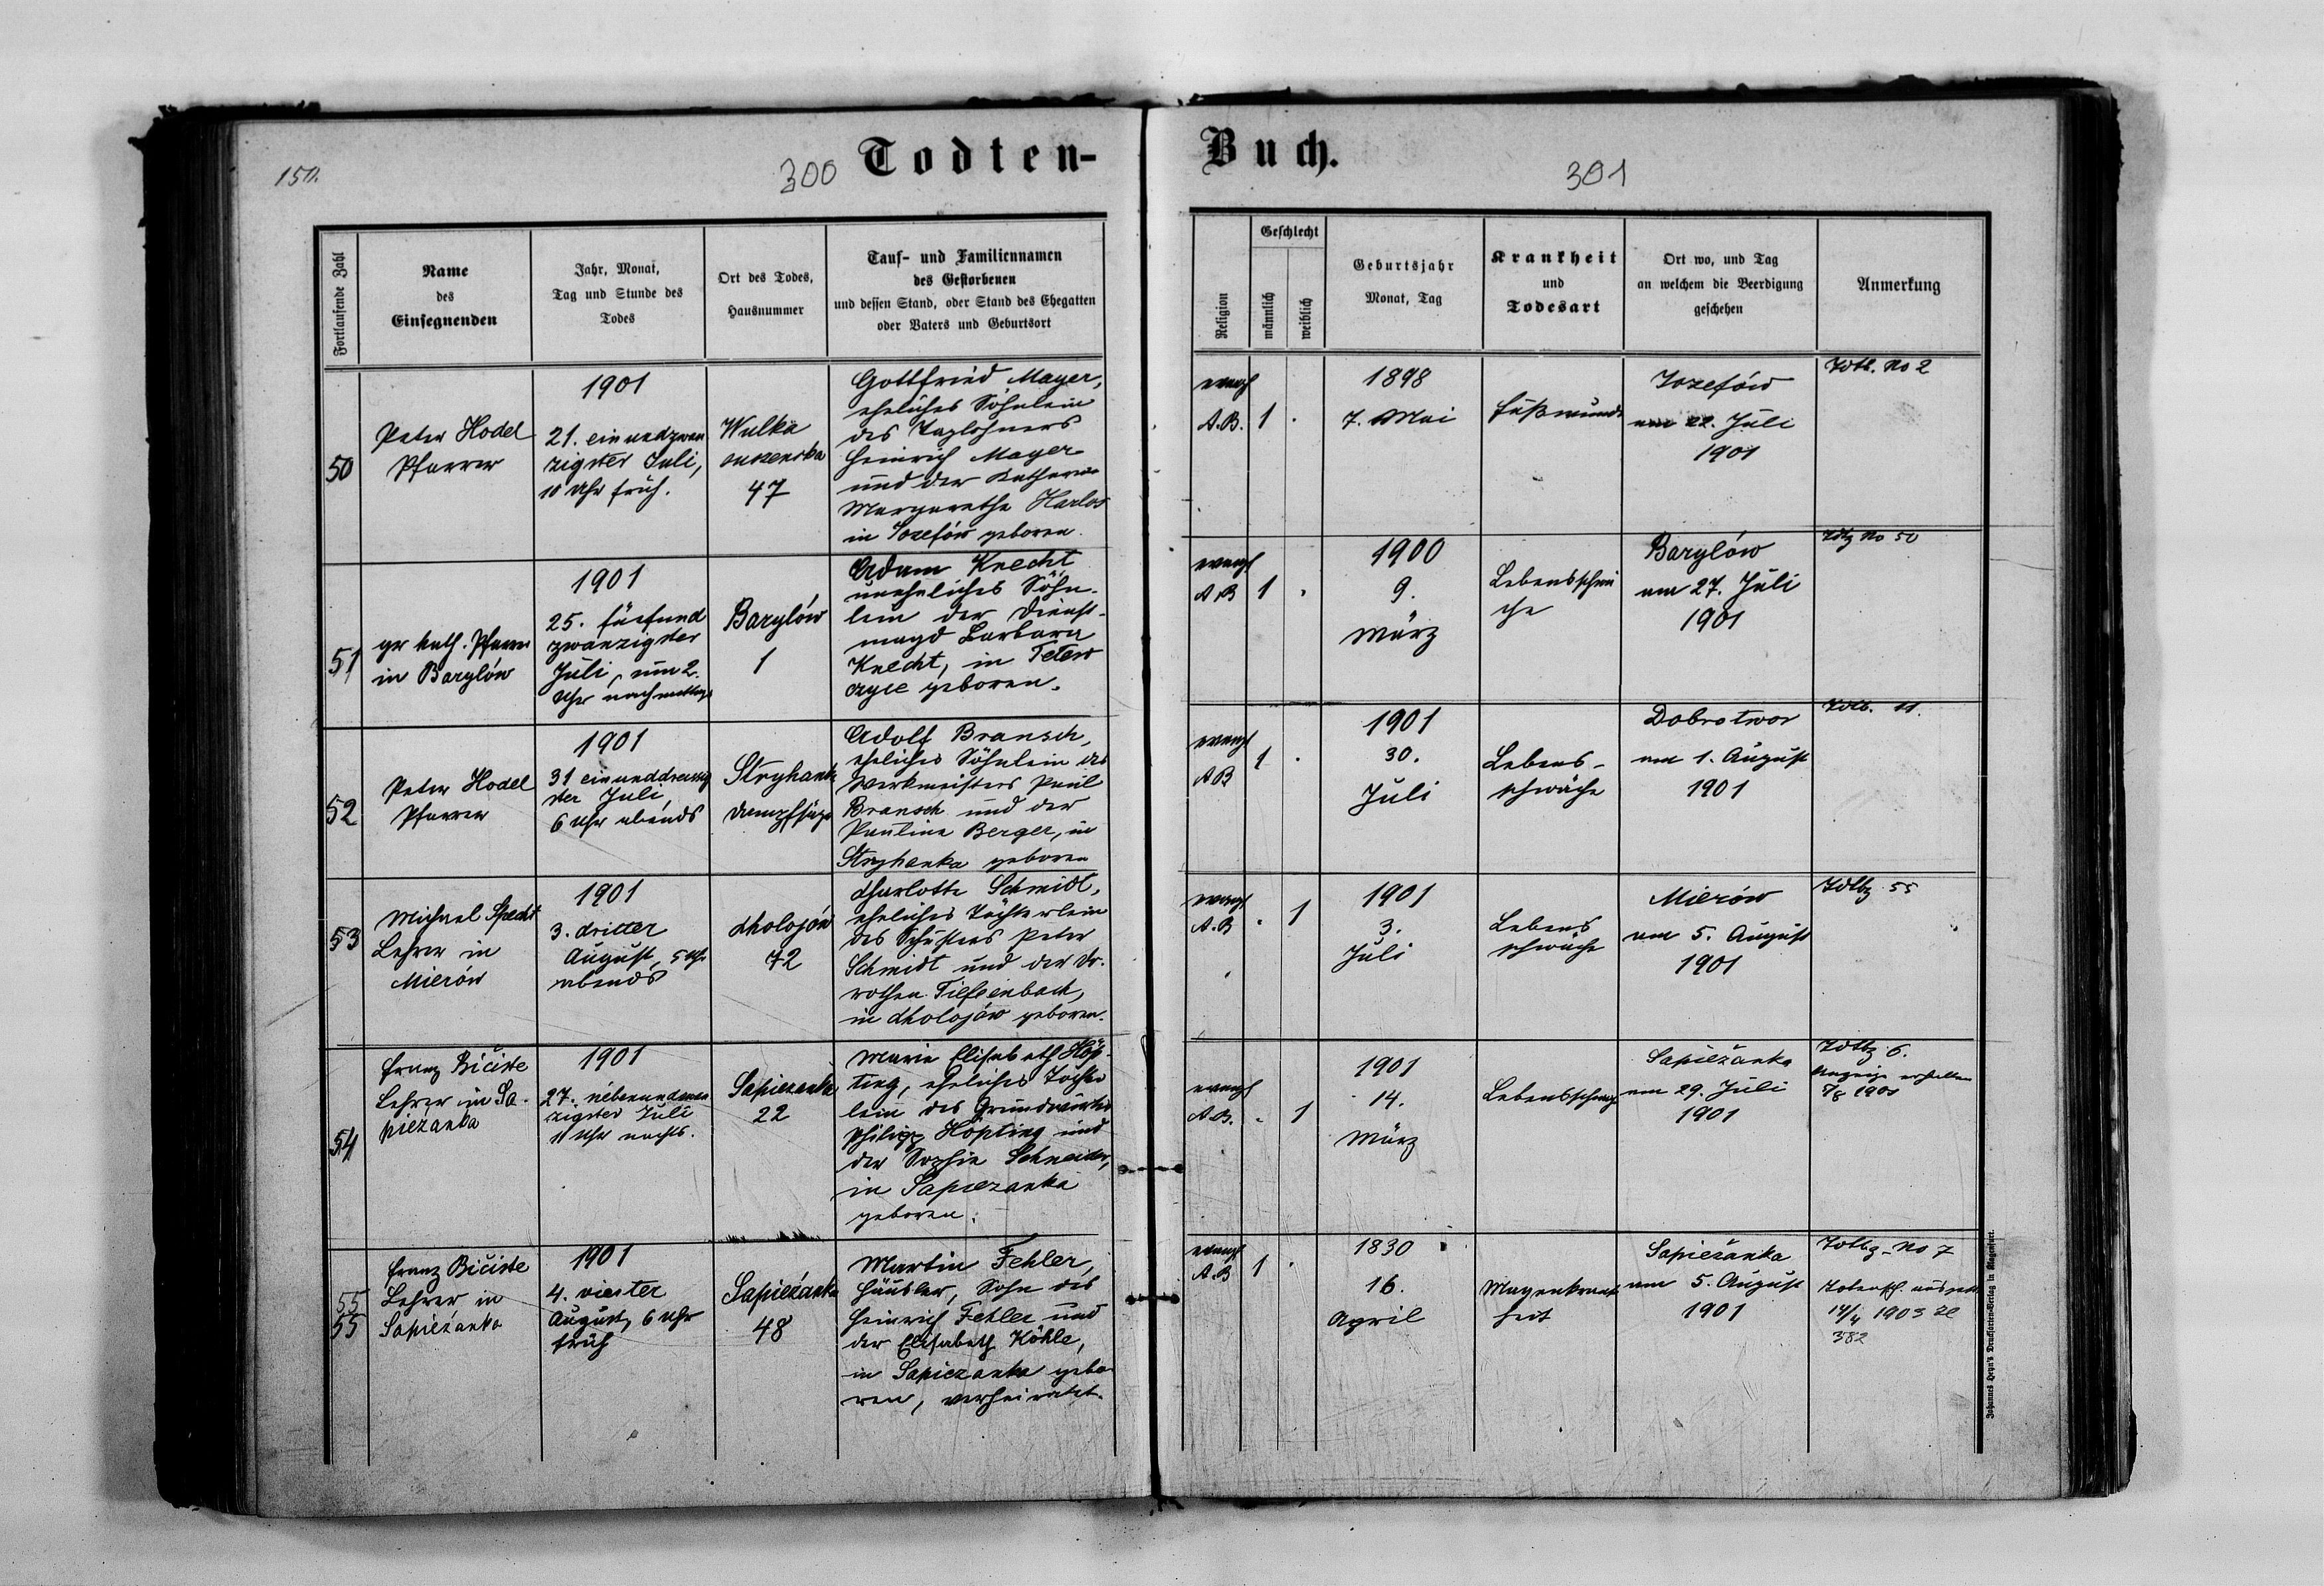 150.
300
Todten-
Fortlaufende Zahl
Name
des
Einsegnenden
Jahr, Monat,
Tag und Stunde des
Todes
Ort des Todes,
Hausnummer
Tauf- und Familiennamen
des Gestorbenen
und dessen Stand, oder Stand des Ehegatten
oder Vaters und Geburtsort
50
Peter Hodel
Pfarrer
1901
21. einundzwan
zigster Juli,
10 Uhr früh.
Wulka
suszenska
47
Gottfried Mayer,
eheliches Söhnlein
des Taglöhners
Heinrich Mayer
und der Katharina
Margarethe Harlos
in Józefów geboren.
51
gr kath. Pfarrer
in Barylów
1901
25. fünfund
zwanzigster
Juli, um 2.
Uhr nachmittags
Barylów
1
Adam Knecht
uneheliches Söhn-
lein der Dienst-
magd Barbara
Knecht, in Tetew
czyce geboren.
52
Peter Hodel
Pfarrer
1901
31 einunddreissig
ster Juli,
6 Uhr abends
Stryhanka
Dampfsäge
Adolf Bransch,
eheliches Söhnlein des
Werkmeisters Paul
Bransch und der
Pauline Berger, in
Stryhanka geboren
53
Michael Specht
Lehrer in
Mierów
1901
3. dritter
August, 5 Uhr
abends
Chołojów
72
Charlotte Schmidt,
eheliches Töchterlein
des Schusters Peter
Schmidt und der Do-
rothea Tiefenbach,
in Chołojów geboren.
54
Franz Bičiste
Lehrer in Sa-
pieżanka
1901
27. siebenundzwan
zigster Juli
11 Uhr nachts.
Sapiezanka
22
Marie Elisabeth Höp-
ting, eheliches Töchter
lein des Grundwirths
Philipp Höpting und
der Sophie Schneider,
in Sapiezanka
geboren.
55
55
Franz Bičiste
Lehrer in
Sapieżanka
1901
4. vierter
August, 6 Uhr
früh
Sapieżanka
48
Martin Fehler,
Häusler, Sohn des
Heinrich Fehler und
der Elisabeth Köhle,
in Sapiezanka gebo
ren, verheiratet.
Buch.
301
Religion
Geschlecht
männlich
weiblich
Geburtsjahr
Monat, Tag
Krankheit
und
Todesart
Ort wo, und Tag
an welchem die Beerdigung
geschehen
Anmerkung
evangl
A.B.
1
.
1898
7. Mai
Fußwunde
Jozefów
am 22. Juli
1901
No 2
evangl
A B
1
.
1900
9.
März
Lebensschwä
che
Barylów
am 27. Juli
1901
No 50
evangl
A B
1
.
1901
30.
Juli
Lebens-
schwäche
Dobrotwor
am 1. August
1901
11.
evangl
A.B
.
1
1901
3.
Juli
Lebens
schwäche
Mierów
am 5. August
1901
Tdtbg 55
evangl
A.B.
.
1
1901
14.
März
Lebensschwäche
Sapieżanka
am 29. Juli
1901
Tdtbg 6.
Anzeige erhalten
7/8 1901
evangl
A.B
1
.
1830
16.
April
Magenkrank
heit
Sapieżanka
am 5. August
1901
Tdtbg No 7
14/4 1903 Zl
382
Johannes Heyn's Drucksorten-Verlag in Klagenfurt.